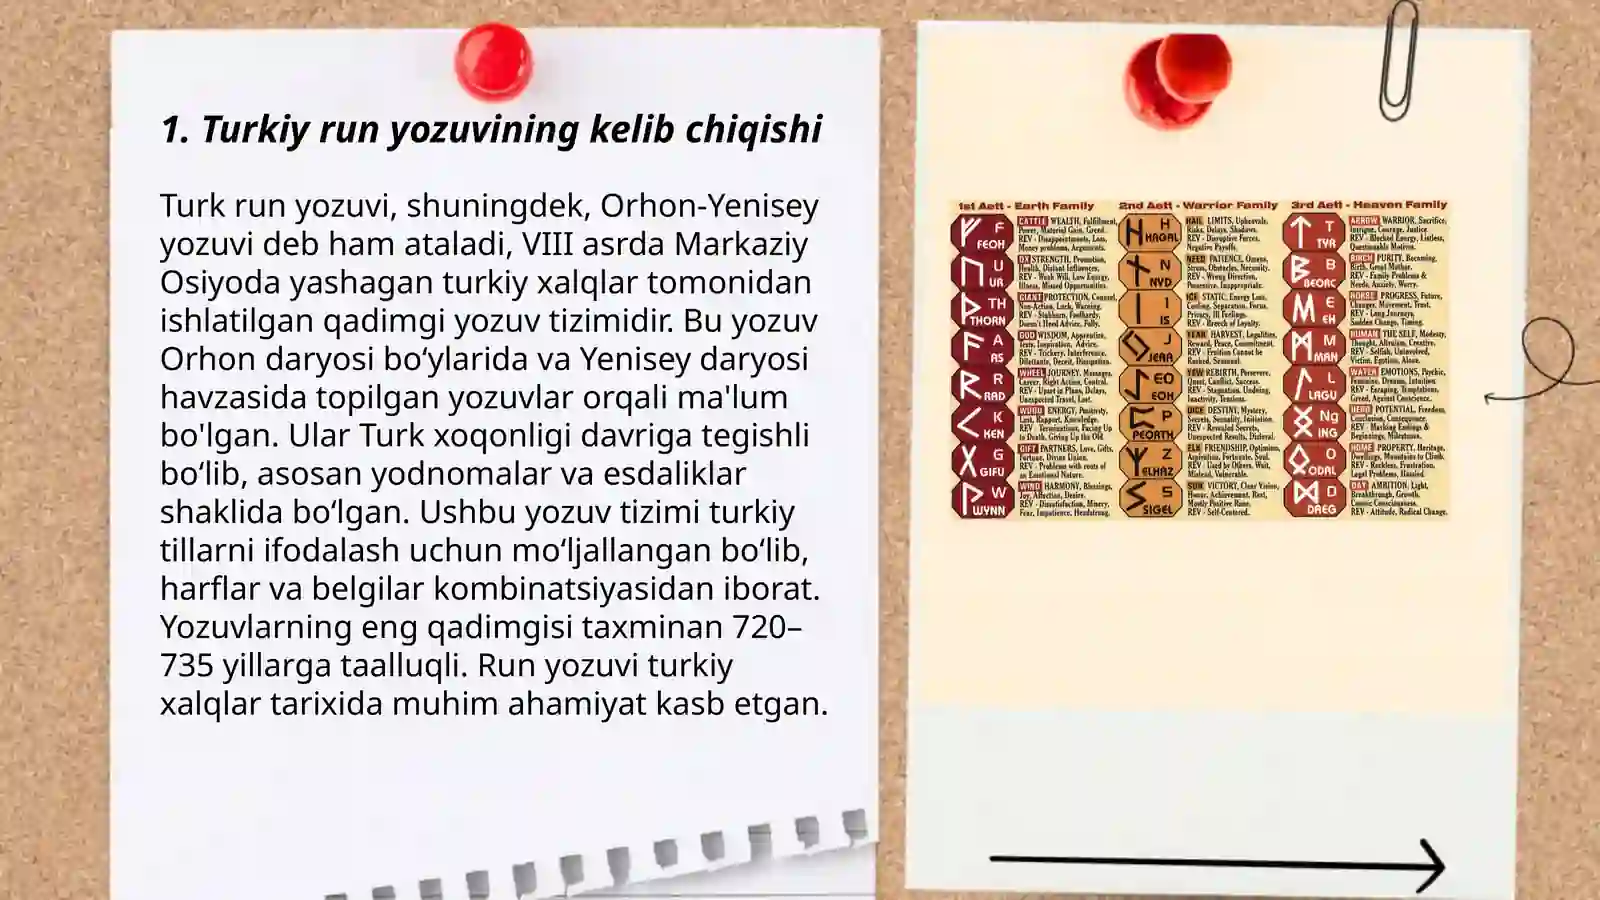 1. Turkiy run yozuvining kelib chiqishi
Turk run yozuvi, shuningdek, Orhon-Yenisey
yozuvi deb ham ataladi, VIII asrda Markaziy
Osiyoda yashagan turkiy xalqlar tomonidan
ishlatilgan qadimgi yozuv tizimidir. Bu yozuv
Orhon daryosi bo‘ylarida va Yenisey daryosi
havzasida topilgan yozuvlar orqali ma'lum
bo'lgan. Ular Turk xoqonligi davriga tegishli
bo‘lib, asosan yodnomalar va esdaliklar
shaklida bo‘lgan. Ushbu yozuv tizimi turkiy
tillarni ifodalash uchun mo‘ljallangan bo‘lib,
harflar va belgilar kombinatsiyasidan iborat.
Yozuvlarning eng qadimgisi taxminan 720–
735 yillarga taalluqli. Run yozuvi turkiy
xalqlar tarixida muhim ahamiyat kasb etgan.
1st Aett - Earth Family
F
FEOH
CATTLE WEALTH, Fulfillment,
Power, Material Gain, Greed.
REV - Disappointments, Loss,
Money problems, Arguments.
U
UR
OX STRENGTH, Promotion,
Health, Distant Influences,
REV - Weak Will, Low Energy,
Illness, Missed Opportunities.
TH
THORN
GIANT PROTECTION, Counsel,
Non-Action, Luck, Warning.
REV - Stubborn, Foolhardy,
Doesn't Heed Advice, Folly.
A
AS
GOD WISDOM, Apprentice,
Tests, Inspiration, Advice.
REV - Trickery, Interference,
Dilettante, Deceit, Dissipation.
R
RAD
WHEEL JOURNEY, Messages,
Career, Right Action, Control.
REV - Upset in Plans, Delays,
Unexpected Travel, Lost.
K
KEN
ENERGY, Positivity,
Lust, Rapport, Knowledge.
REV - Terminations, Facing Up
to Death, Giving Up the Old.
G
GIFU
GIFT PARTNERS, Love, Gifts,
Fortune, Divine Union.
REV - Problems with roots of
an Emotional Nature.
W
WYNN
WIND HARMONY, Blessings,
Joy, Affection, Desire.
REV - Dissatisfaction, Misery,
Fear, Impatience, Headstrong.
2nd Aett - Warrior Family
H
HAGAL
HAIL LIMITS, Upheavals,
Risks, Delays, Shadows.
REV - Disruptive Forces,
Negative Payoffs.
N
NYD
NEED PATIENCE, Omens,
Stress, Obstacles, Necessity.
REV - Wrong Direction,
Possessive, Inappropriate.
I
IS
ICE STATIC, Energy Loss,
Cooling, Separation, Focus,
Privacy, Ill Feelings.
REV - Breech of Loyalty.
J
JERA
YEAR HARVEST, Legalities,
Reward, Peace, Commitment.
REV - Fruition Cannot be
Rushed, Seasonal.
EO
EOH
YEW REBIRTH, Persevere,
Quest, Conflict, Success.
REV - Stagnation, Undoing,
Inactivity, Tension.
P
PEORTH
DICE DESTINY, Mystery,
Secrets, Sexuality, Initiation.
REV - Revealed Secrets,
Unexpected Results, Disloyal.
Z
ELHAZ
ELK FRIENDSHIP, Optimism,
Aspiration, Fortunate, Soul.
REV - Used by Others, Wait,
Mislead, Vulnerable.
S
SIGEL
SUN VICTORY, Clear Vision,
Honor, Achievement, Rest,
Mostly Positive Rune.
REV - Self-Centered.
3rd Aett - Heaven Family
T
TYR
ARROW WARRIOR, Sacrifice,
Intrigue, Courage, Justice.
REV - Blocked Energy, Listless,
Questionable Motives.
B
BEORC
BIRCH PURITY, Becoming,
Birth, Great Mother.
REV - Family Problems &
Needs, Anxiety, Worry.
E
EH
HORSE PROGRESS, Future,
Changes, Movement, Trust.
REV - Long Journeys,
Sudden Change, Timing.
M
MAN
HUMAN THE SELF, Modesty,
Thought, Altruism, Creative.
REV - Selfish, Uninvolved,
Victim, Egotism, Alone.
L
LAGU
WATER EMOTIONS, Psychic,
Feminine, Dreams, Intuition.
REV - Escaping, Temptations,
Greed, Against Conscience.
Ng
ING
HERO POTENTIAL, Freedom,
Conclusion, Consequence.
REV - Marking Endings &
Beginnings, Milestones.
O
ODAL
HOME PROPERTY, Heritage,
Dwellings, Mountains to Climb.
REV - Reckless, Frustration,
Legal Problems, Hassled.
D
DAEG
DAY AMBITION, Light,
Breakthrough, Growth,
Cosmic Consciousness.
REV - Attitude, Radical Change.